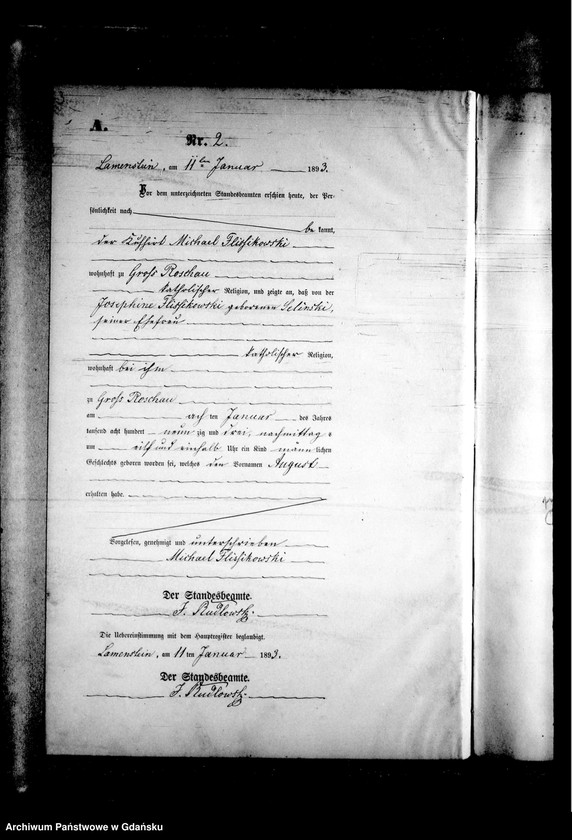 A.
Nr. 2.
Lamenstein, am 11ten Januar 1893.
Vor dem unterzeichneten Standesbeamten erschien heute, der Per-
sönlichkeit nach
be kannt,
der Michael Flissikowski
wohnhaft zu Groß Roschau
katholischer Religion, und zeigte an, daß von der
Josephine Flissikowski geborenen Selinski,
seiner Ehefrau
katholischer Religion,
wohnhaft bei ihm
zu Groß Roschau
am ach ten Januar des Jahres
tausend acht hundert neun zig und drei, nachmittags
um eilf und einhalb Uhr ein Kind männ lichen
Geschlechts geboren worden sei, welches den Vornamen August
erhalten habe.
Vorgelesen, genehmigt und unterschrieben
Michael Flissikowski
Der Standesbeamte.
Die Uebereinstimmung mit dem Hauptregister beglaubigt.
Lamenstein, am 11 ten Januar 1893.
Der Standesbeamte.
Archiwum Państwowe w Gdańsku